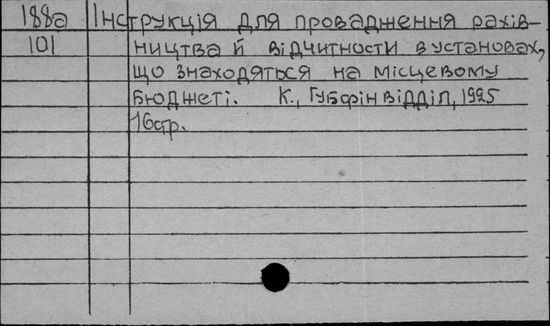 188а Інструкція для провадження рахів-
101 ництва й відчитности в установах,
що знаходяться на місцевому
бюджеті. К., Губфінвідділ, 1925
16стр.